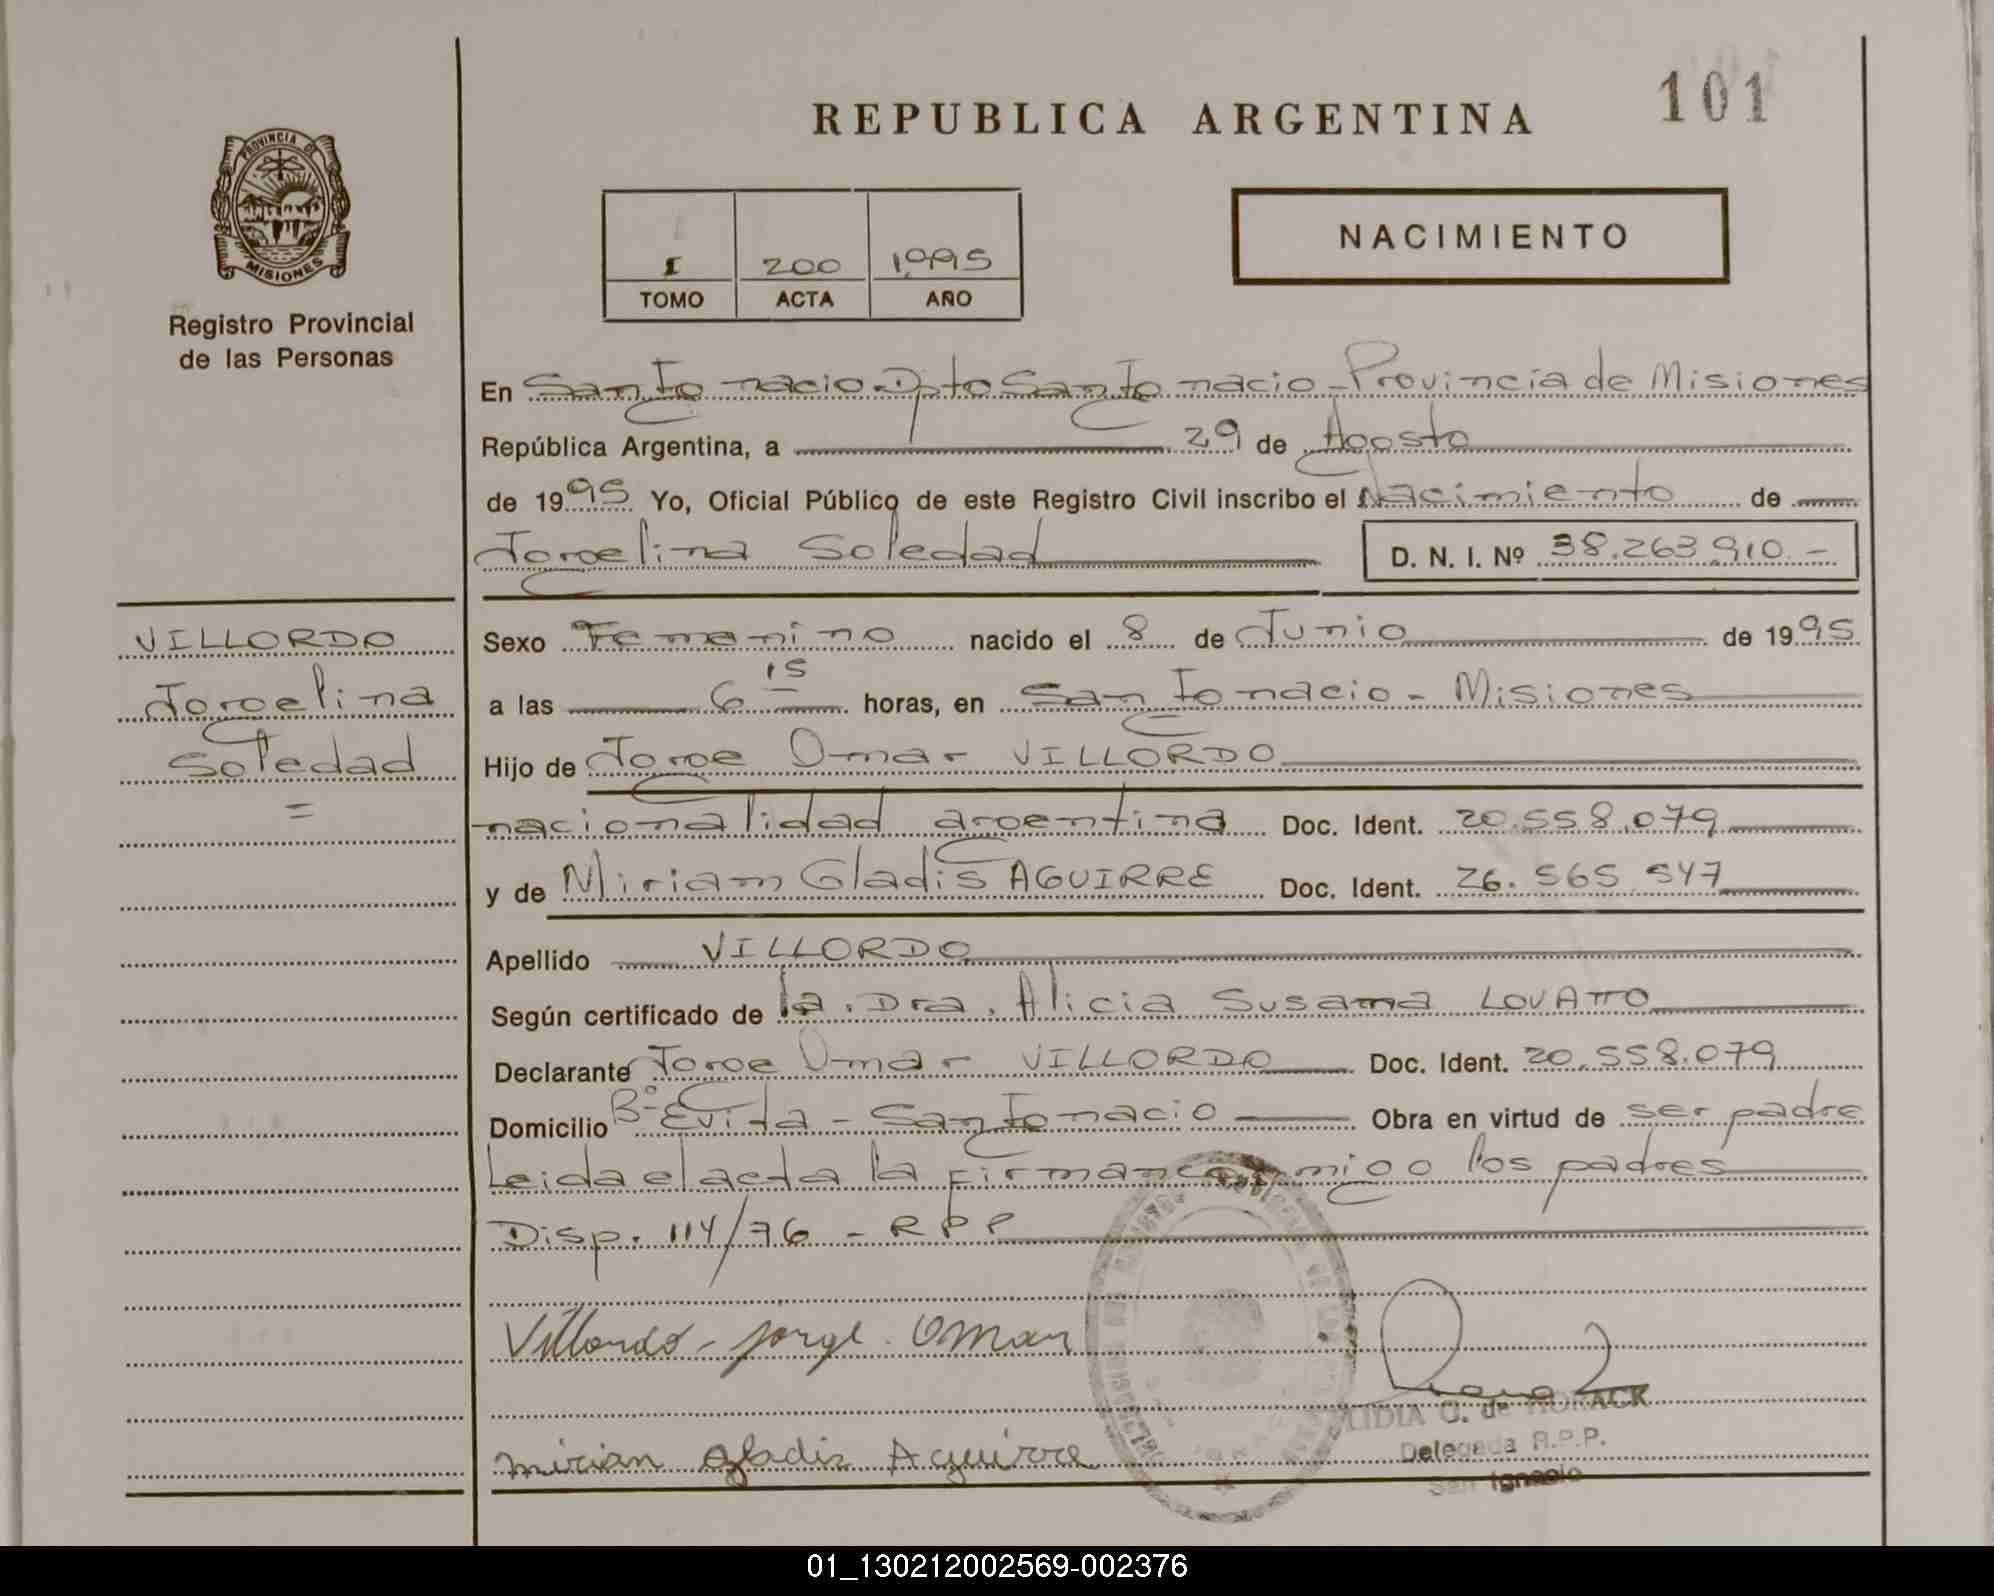 101
REPUBLICA ARGENTINA
PROVINCIA DE
MISIONES
Registro Provincial
de las Personas
I 200 1995
TOMO ACTA AÑO
NACIMIENTO
En San Ignacio Dpto San Ignacio - Provincia de Misiones
República Argentina, a 29 de Agosto
de 1995 Yo, Oficial Público de este Registro Civil inscribo el Nacimiento de
Jorgelina Soledad D. N. I. Nº 38.263.910.-
VILLORDO
Jorgelina
Soledad
=
Sexo Femenino nacido el 8 de Junio de 1995
a las 6 15 horas, en San Ignacio - Misiones
Hijo de Jorge Omar VILLORDO
nacionalidad argentina Doc. Ident. 20.558.079
y de Miriam Gladis AGUIRRE Doc. Ident. 26.565.547
Apellido VILLORDO
Según certificado de la Dra. Alicia Susana LOVATTO
Declarante Jorge Omar VILLORDO Doc. Ident. 20.558.079
Domicilio Bº Evita - San Ignacio Obra en virtud de ser padre
Leida el acta la firman conmigo los padres
Disp. 114/76 - RPP
Villordo - Jorge. Omar
Mirian Gladis Aguirre
LIDIA G. de HORACK
Delegada R.P.P.
San Ignacio
01_130212002569-002376